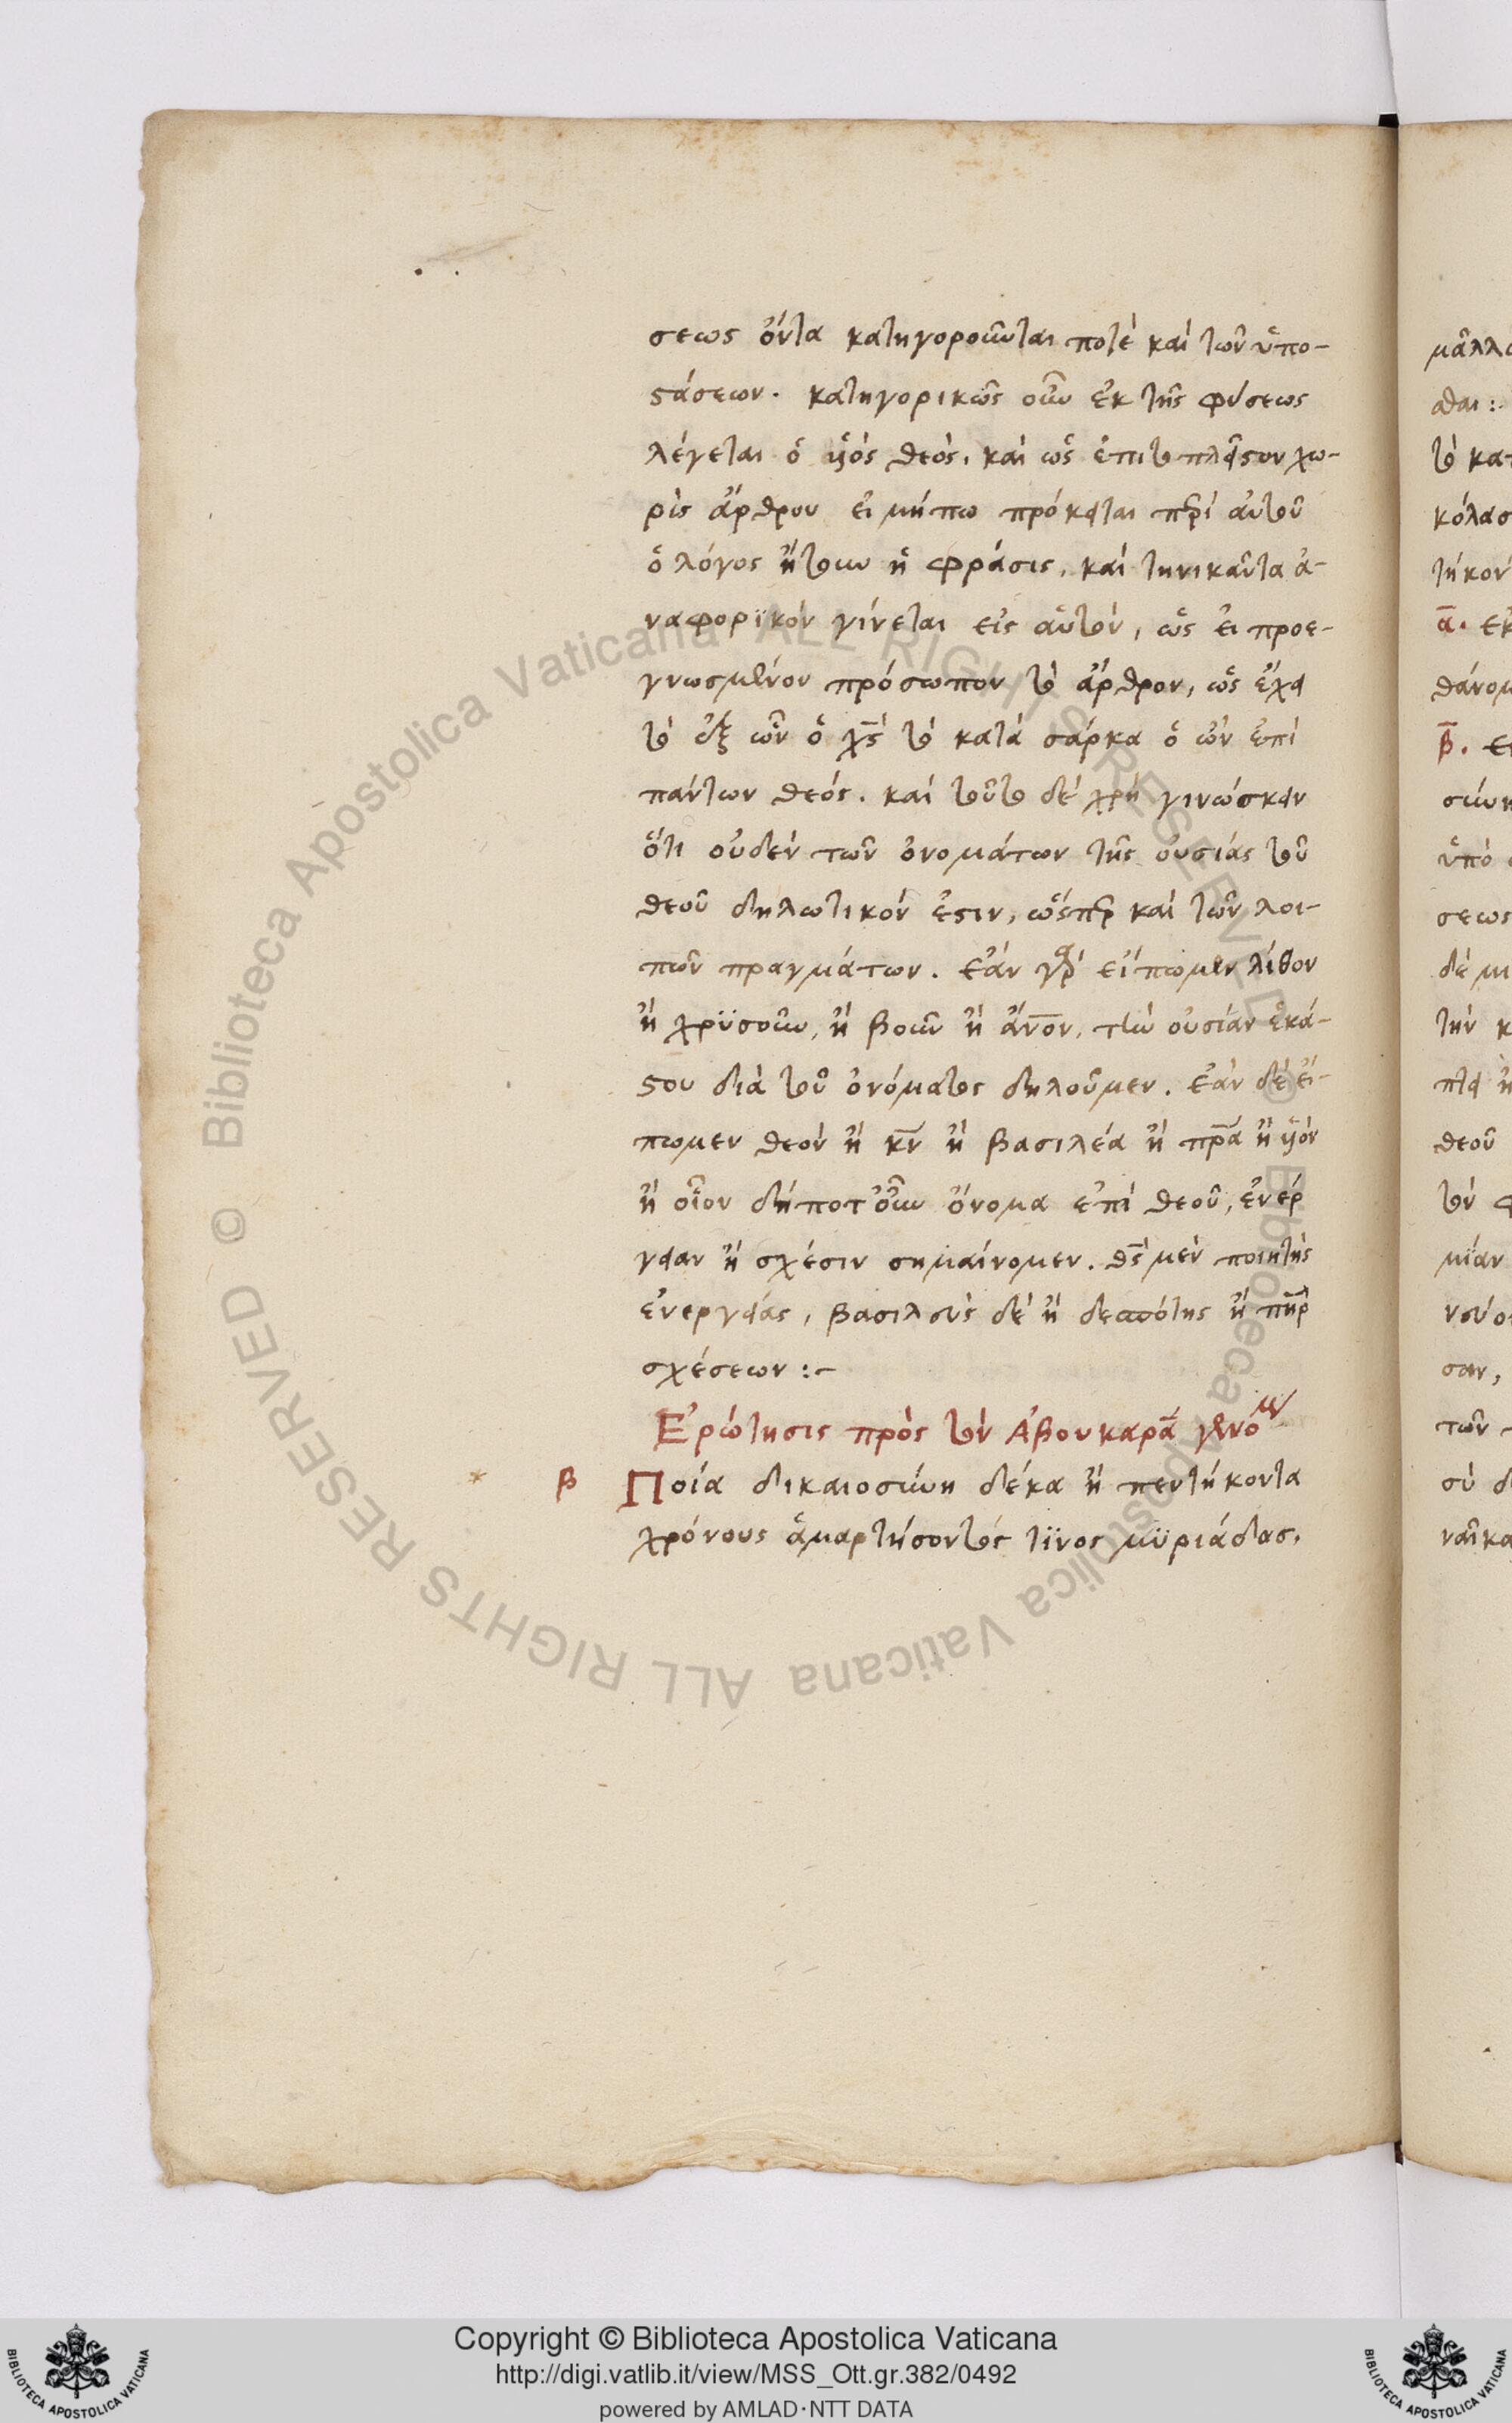 σεως ὄντα κατηγοροῦνται ποτὲ καὶ τῶν ὑπο-
στάσεων. κατηγορικῶς οὖν ἐκ τῆς φύσεως
λέγεται ὁ υἱὸς θεὸς, καὶ ὡς ἐπιτοπλεῖστον χω-
ρὶς ἄρθρου εἰ μήπω πρόκειται περὶ αὐτοῦ
ὁ λόγος ἤτουν ἡ φράσις, καὶ τηνικαῦτα ἀ-
ναφορϊκὸν γίνεται εἰς αὐτὸν, ὡς εἰ προε-
γνωσμένον πρόσωπον τὸ ἄρθρον, ὡς ἔχει
τὸ ἐξ ὧν ὁ χς τὸ κατὰ σάρκα ὁ ὢν ἐπὶ
πάντων θεός. καὶ τοῦτο δὲ χρὴ γινώσκειν
ὅτι οὐδὲν τῶν ὀνομάτων τῆς οὐσίας τοῦ
θεοῦ δηλωτικόν ἐστιν, ὥσπερ καὶ τῶν λοι-
πῶν πραγμάτων. ἐὰν γὰρ εἴπωμεν λίθον
ἢ χρϋσοῦν, ἢ βοῦν ἢ ἄνον, τὴν οὐσίαν ἑκά-
στου διὰ τοῦ ὀνόματος δηλοῦμεν. ἐὰν δὲ εἴ-
πωμεν θεὸν ἢ κν ἢ βασιλέα ἢ πρα ἢ υἱὸν
ἢ οἷον δήποτ' οὖν ὄνομα ἐπὶ θεοῦ, ἐνέρ
γειαν ἢ σχέσιν σημαίνομεν. θς μὲν ποιητὴς
ἐνεργείας, βασιλεὺς δὲ ἢ δεσπότης ἢ πηρ
σχέσεων :-
Ἐρώτησις πρὸς τὸν Ἀβουκαρᾶ γενομ
β Ποία δικαιοσύνη δέκα ἢ πεντήκοντα
χρόνους ἁμαρτήσοντός τϊνος μϋριάδας.
μᾶλλ
σθαι :
τὸ κατ
κόλασ
τήκον
α. ἐκ
θάνομ
β.
ὑπὸ
σεως
δὲ μι
τὴν κ
θεοῦ
τὸν
μΐαν
νεύο
σαν,
τῶν
σὺ δ
ναῖκα
© Biblioteca Apostolica Vaticana ALL RIGHTS RESERVED
© Biblioteca Apostolica Vaticana ALL RIGHTS RESERVED
BIBLIOTECA APOSTOLICA VATICANA
Copyright © Biblioteca Apostolica Vaticana
http://digi.vatlib.it/view/MSS_Ott.gr.382/0492
powered by AMLAD·NTT DATA
BIBLIOTECA APOSTOLICA VATICANA